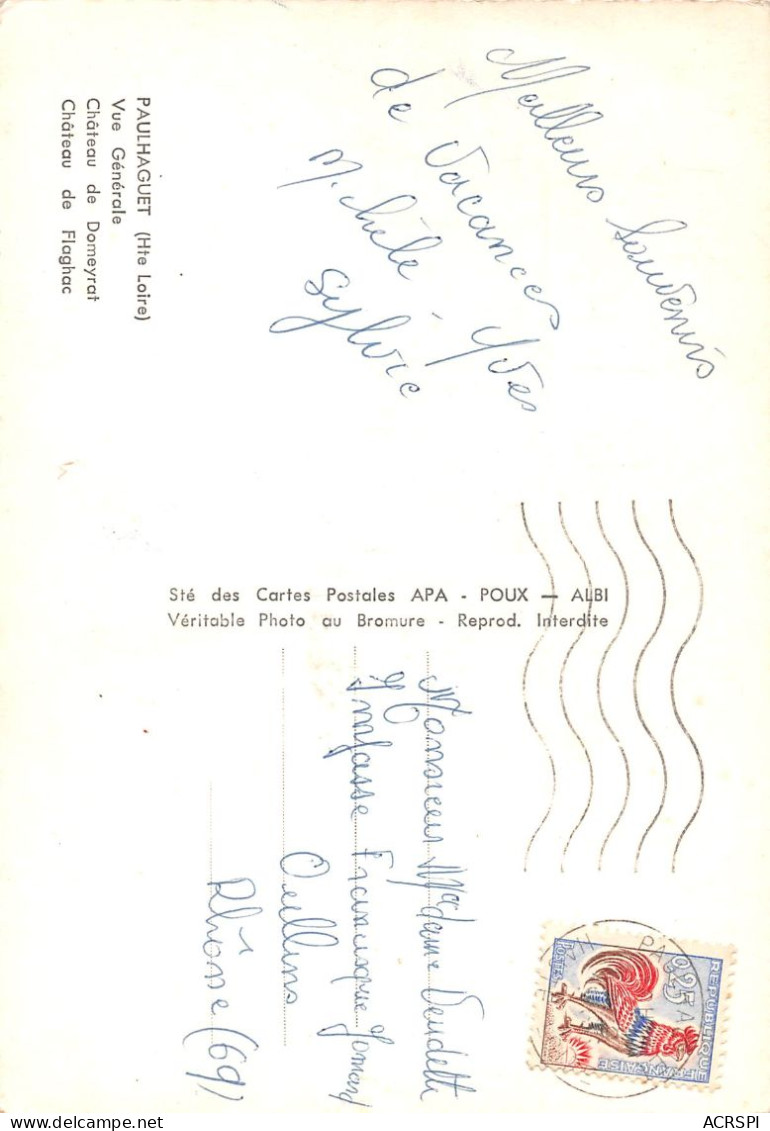 PAULHAGUET (Hte Loire)
Vue Générale
Château de Domeyrat
Château de Flaghac
Meilleurs Souvenirs
de Vacances
Michèle - Yves
Sylvie
Sté des Cartes Postales APA - POUX - ALBI
Véritable Photo au Bromure - Reprod. Interdite
Monsieur Madame Vendetti
Impasse Francisque Jomard
Oullins
Rhône (69)
REPUBLIQUE FRANÇAISE
0,25
POSTES
ACRSPI